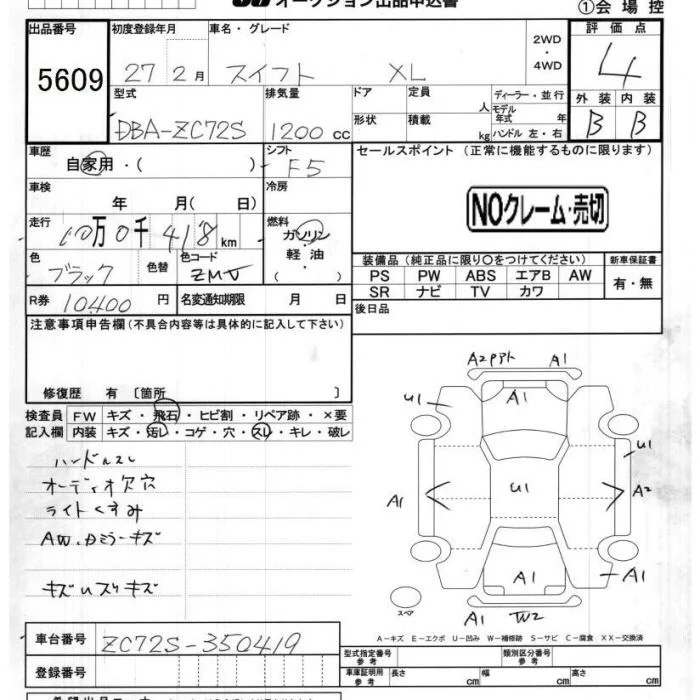 オークション出品申込書
①会場控
出品番号
5609
初度登録年月
27 2月
車名・グレード
スイフト XL
2WD
・
4WD
評価点
4
型式
DBA-ZC72S
排気量
1200 cc
ドア
定員
人
ディーラー・並行
モデル
年式 年
形状
積載
kg
ハンドル 左・右
外装
内装
B
B
車歴
自家用・( )
シフト
F5
セールスポイント (正常に機能するものに限ります)
車検
年 月( 日)
冷房
NOクレーム・売切
走行
10万0千418km
燃料
ガソリン
軽油
( )
色
ブラック
色替
色コード
ZMV
装備品 (純正品に限り○をつけてください)
新車保証書
PS PW ABS エアB AW
有・無
SR ナビ TV カワ
R券
10400円
名変通知期限
月 日
後日品
注意事項申告欄(不具合内容等は具体的に記入して下さい)
修復歴 有 〔箇所 〕
検査員
記入欄
FW キズ・飛石・ヒビ割・リペア跡・×要
内装 キズ・汚レ・コゲ・穴・スレ・キレ・破レ
ハンドルスレ
オーディオ欠穴
ライトくすみ
AW.Dミラーキズ
キズUスリキズ
A2Pアト A1
A1
U1
U1
U1
A1
A2
A1
A1
A1 W2
スペア
A-キズ E-エクボ U-凹み W-補修跡 S-サビ C-腐食 XX-交換済
車台番号
ZC72S-350419
登録番号
型式指定番号
参考
類別区分番号
参考
車庫証明用
参考
長さ cm
幅 cm
高さ cm